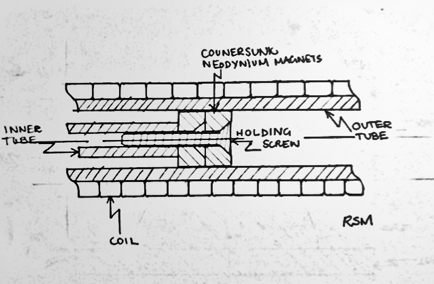 COUNERSUNK
NEODYNIUM MAGNETS
INNER
TUBE
HOLDING
SCREW
OUTER
TUBE
COIL
RSM